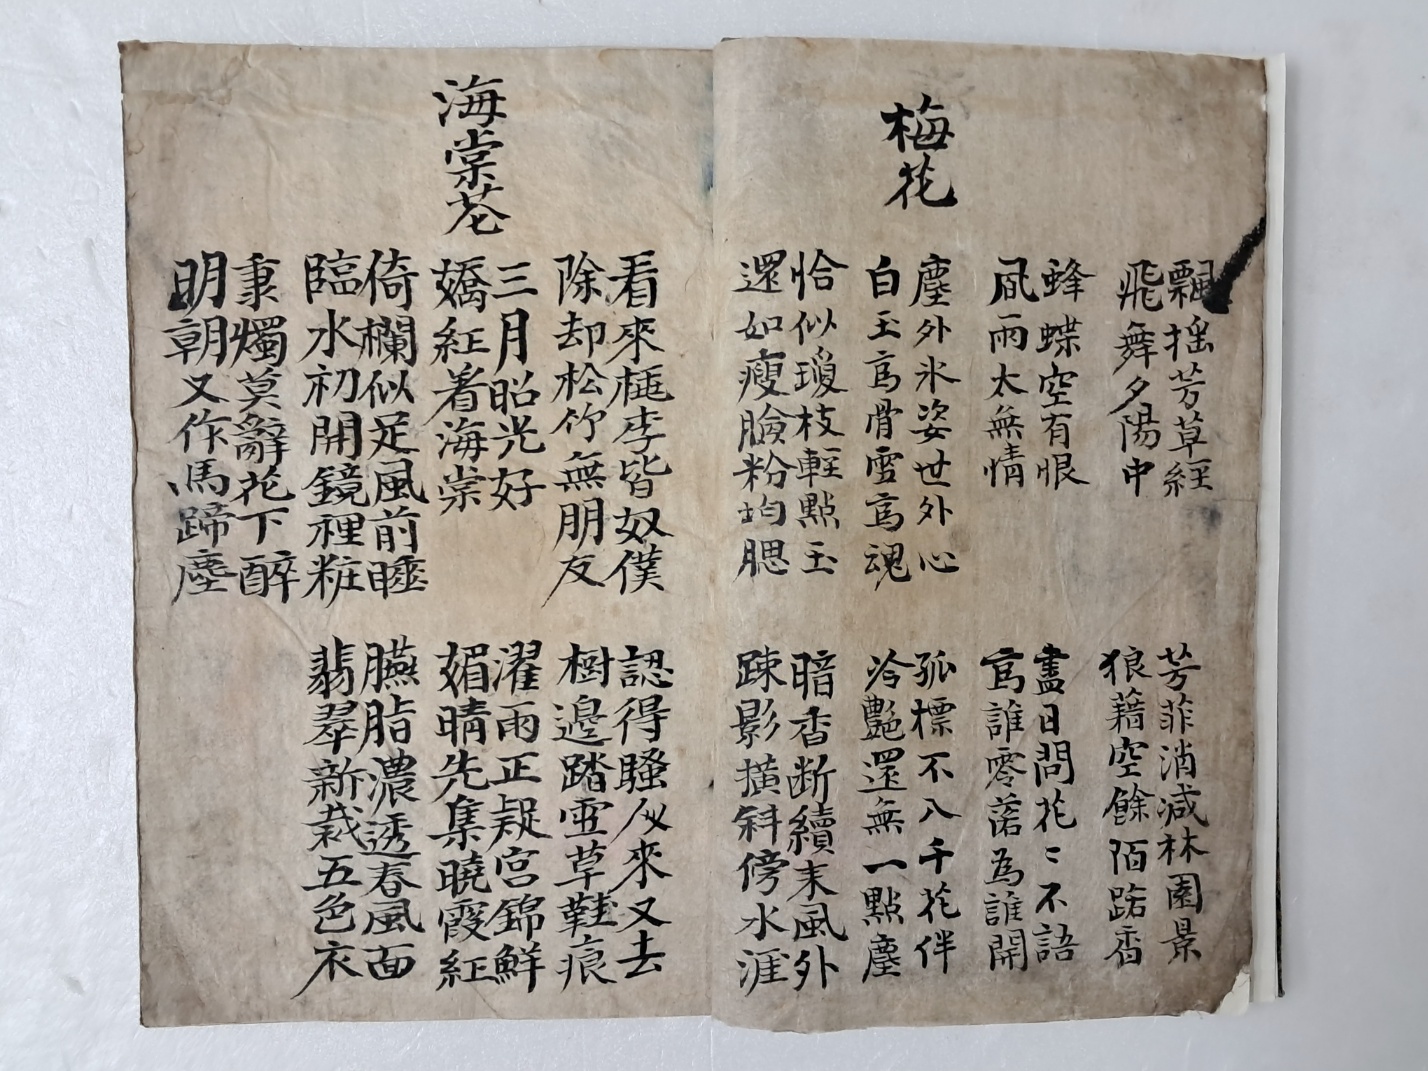 飄搖芳草經
飛舞夕陽中
芳菲消减林園景
狼藉空餘陌路香
蜂蝶空有恨
風雨太無情
盡日問花〻不語
爲誰零落為誰開
梅花
塵外氷姿世外心
白玉爲骨雪爲魂
孤標不入千花伴
冷艷還無一點塵
恰似瓊枝輕點玉
還如瘦臉粉均腮
暗香断續来風外
踈影橫斜傍水涯
看來桃李皆奴僕
除却松竹無朋友
認得騷人來又去
樹邊踏雪草鞋痕
海棠花
三月昭光好
嬌紅着海棠
濯雨正疑宮錦鮮
媚晴先集曉霞紅
倚欄似足風前睡
臨水初開鏡裡粧
臙脂濃透春風面
翡翠新裁五色衣
秉燭莫辭花下醉
明朝又作馬蹄塵